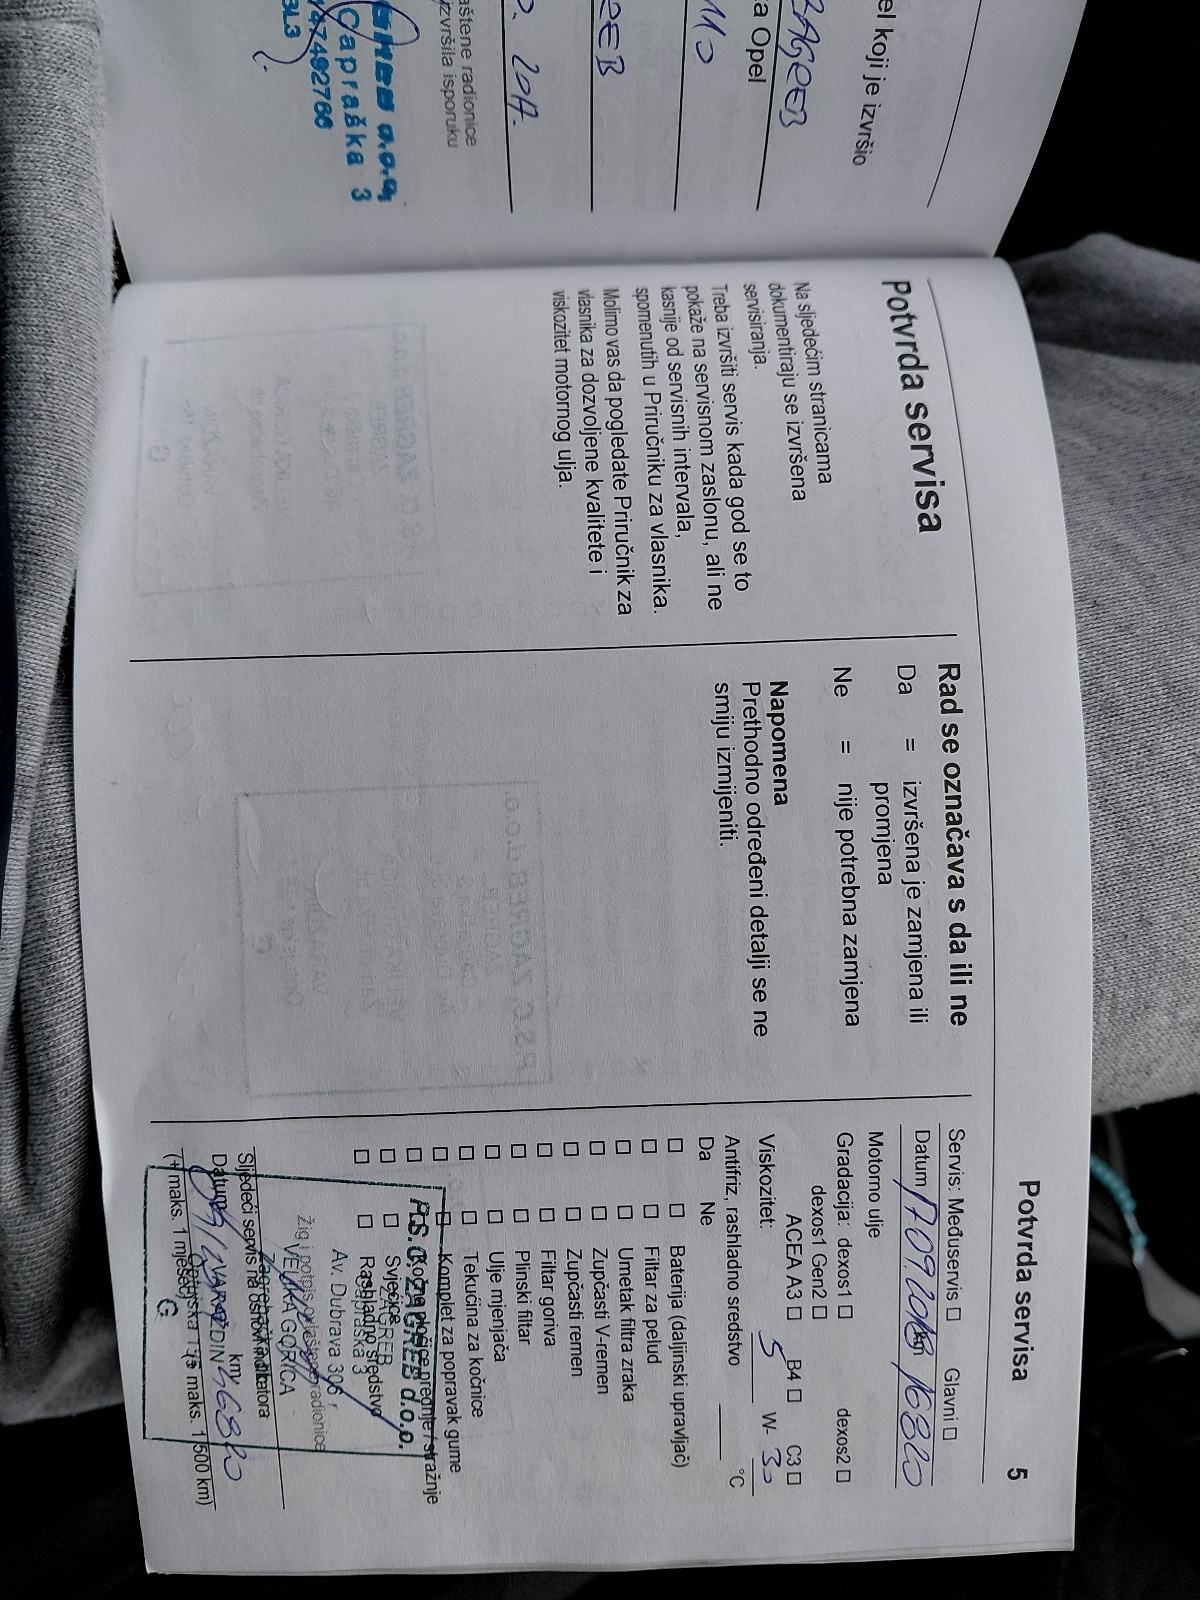 el koji je izvršio
ZAGREB
a Opel
aštene radionice
izvršila isporuku
Čapraška 3
47492766
Potvrda servisa
Na sljedećim stranicama
dokumentiraju se izvršena
servisiranja.
Treba izvršiti servis kada god se to
pokaže na servisnom zaslonu, ali ne
kasnije od servisnih intervala,
spomenutih u Priručniku za vlasnika.
Molimo vas da pogledate Priručnik za
vlasnika za dozvoljene kvalitete i
viskozitet motornog ulja.
Rad se označava s da ili ne
Da = izvršena je zamjena ili
promjena
Ne = nije potrebna zamjena
Napomena
Prethodno određeni detalji se ne
smiju izmijeniti.
Potvrda servisa 5
Servis: Međuservis ☐ Glavni ☐
Datum 17.09.2018 km 16820
Motorno ulje
Gradacija: dexos1 ☐ dexos2 ☐
dexos1 Gen2 ☐
ACEA A3 ☐ B4 ☐ C3 ☐
Viskozitet: 5 W- 30
Antifriz, rashladno sredstvo °C
Da Ne
☐ ☐ Baterija (daljinski upravljač)
☐ ☐ Filtar za pelud
☐ ☐ Umetak filtra zraka
☐ ☐ Zupčasti V-remen
☐ ☐ Zupčasti remen
☐ ☐ Filtar goriva
☐ ☐ Plinski filtar
☐ ☐ Ulje mjenjača
☐ ☐ Tekućina za kočnice
☐ ☐ Komplet za popravak gume
☐ ☐ Kočne pločice prednje / stražnje
☐ ☐ Svjećice
☐ ☐ Rashladno sredstvo
P.S.C. ZAGREB d.o.o.
ZAGREB
Čapraška 3
Av. Dubrava 306
VELIKA GORICA
Žig i potpis ovlaštene radionice
Sljedeći servis na osnovi indikatora
VARAŽDIN
Datum km 46820
(+ maks. 1 mjesec) (+ maks. 1 500 km)
G